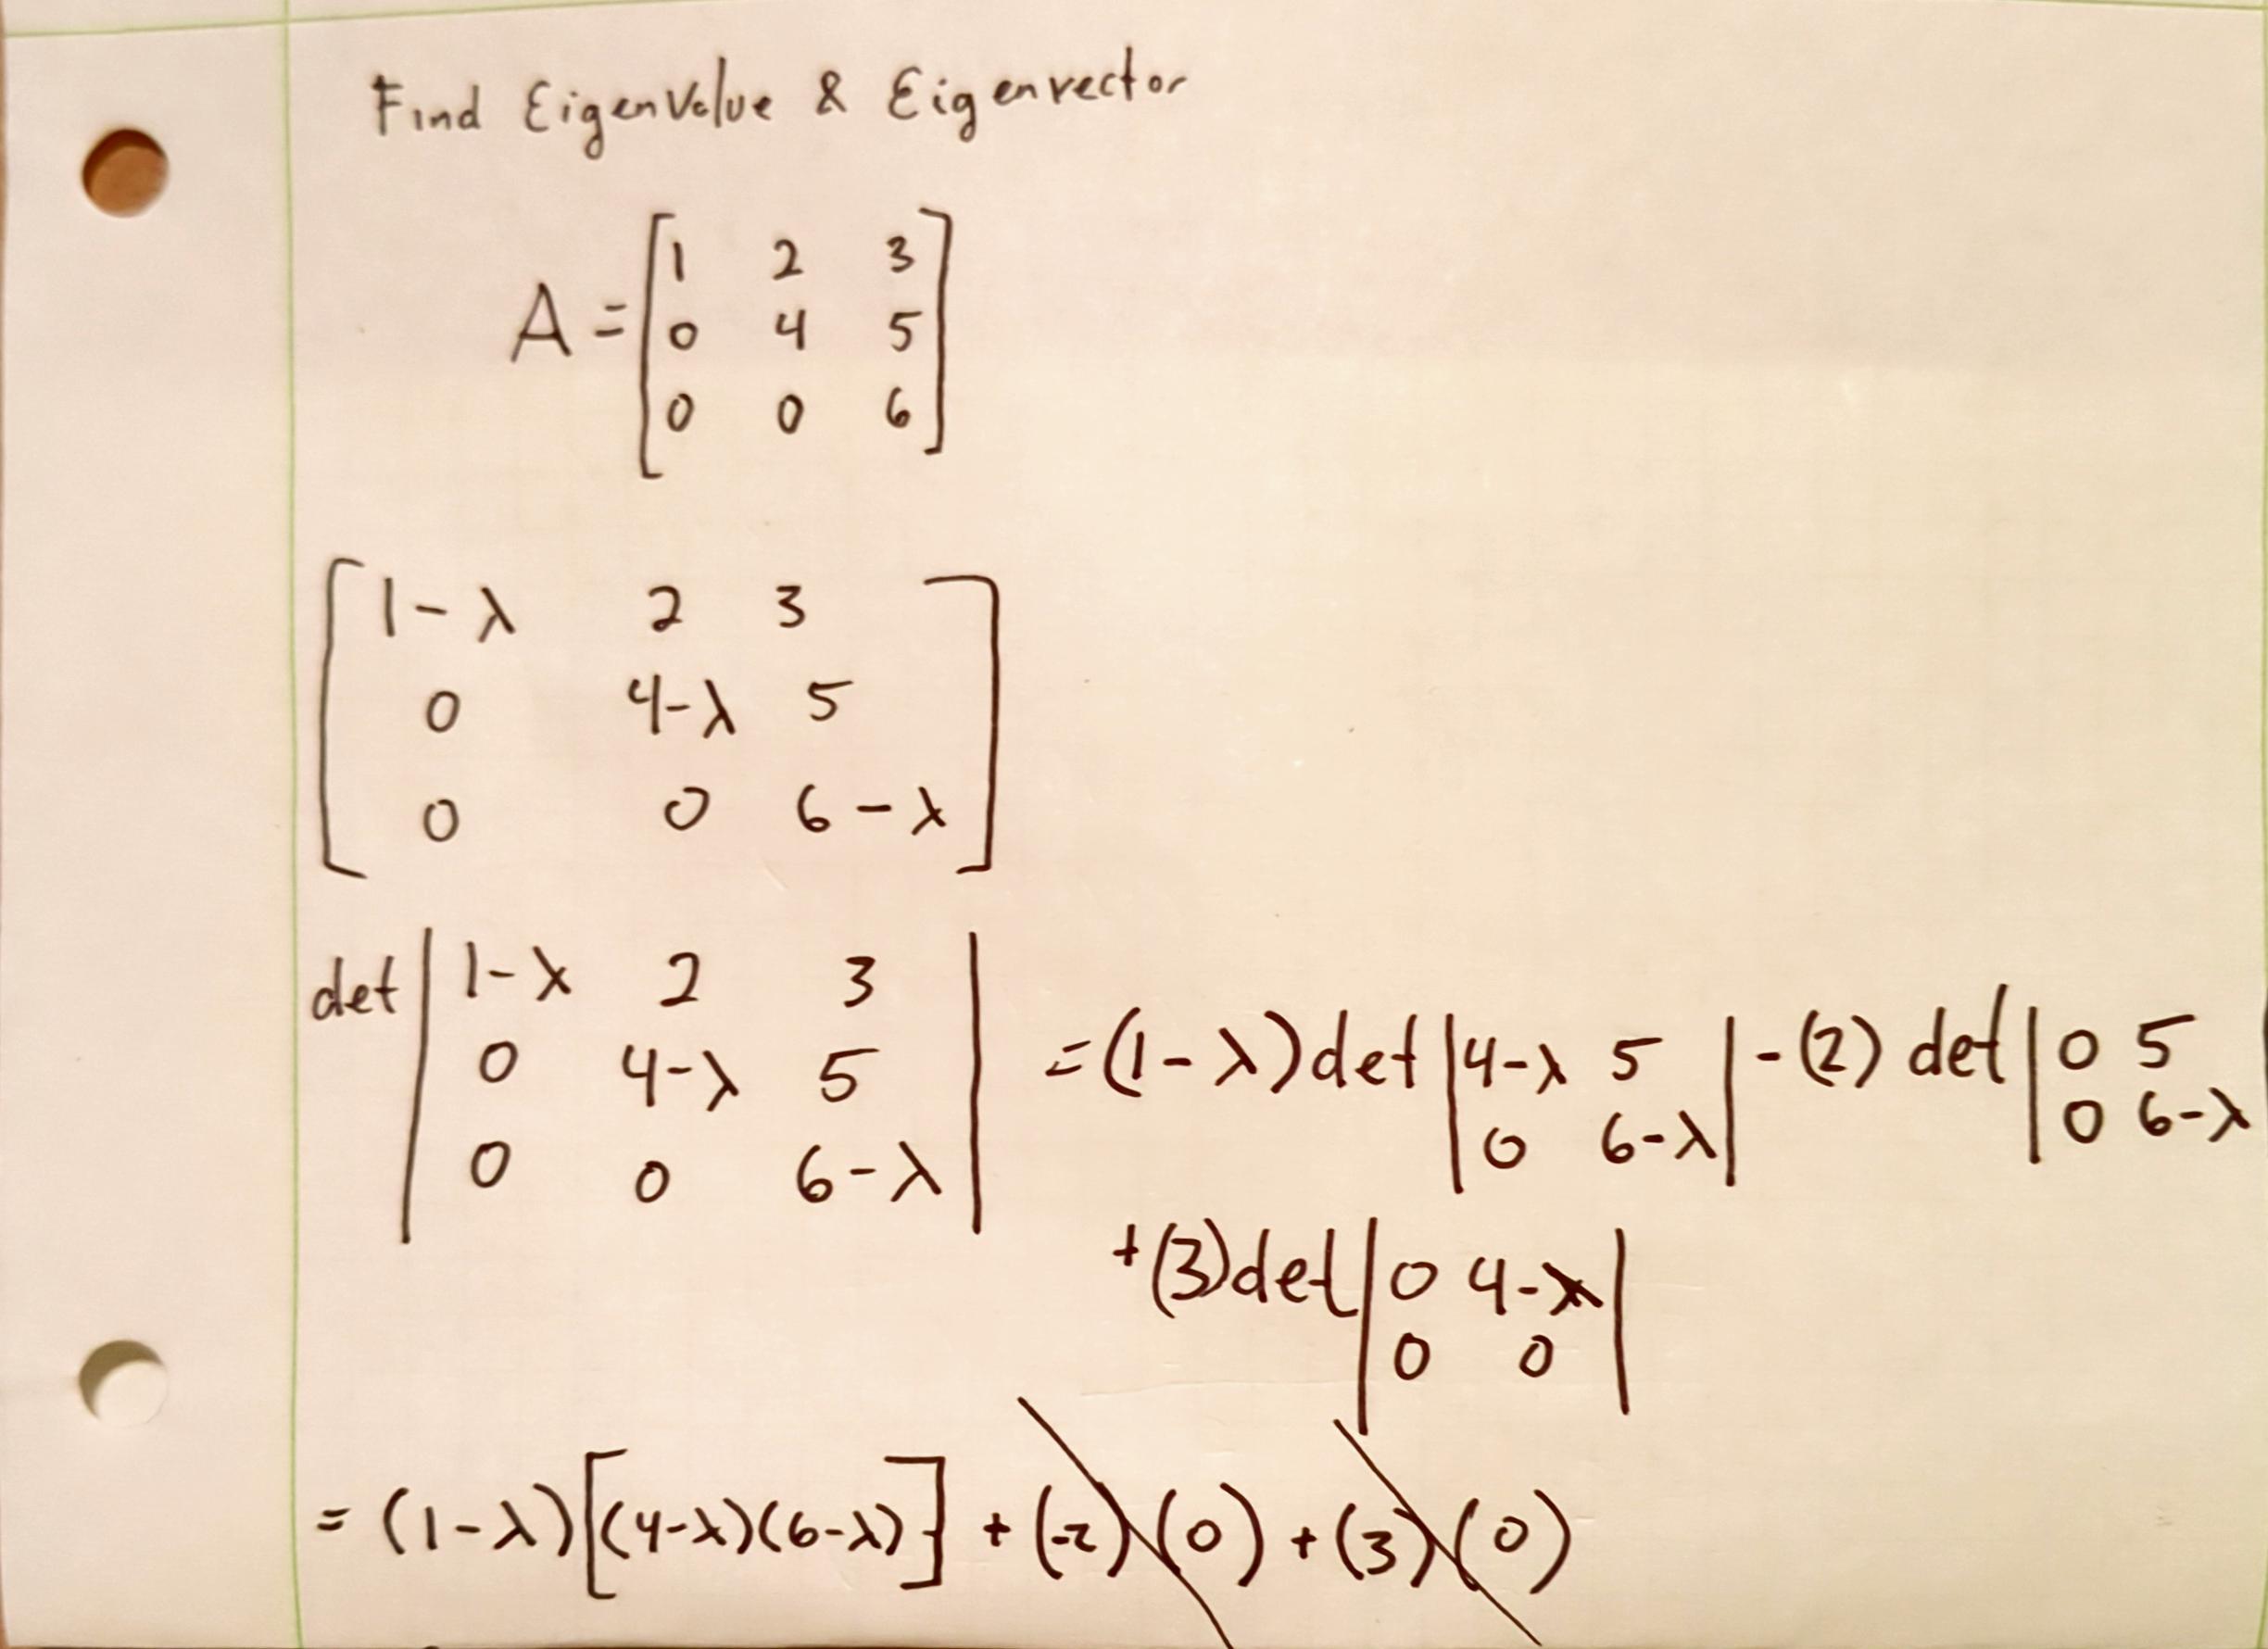 Find EigenValue & Eigenvector
A = [1 2 3
0 4 5
0 0 6]
[1-λ 2 3
0 4-λ 5
0 0 6-λ]
det |1-λ 2 3
0 4-λ 5
0 0 6-λ| = (1-λ) det |4-λ 5
0 6-λ| - (2) det |0 5
0 6-λ
+ (3) det |0 4-λ
0 0|
= (1-λ)[(4-λ)(6-λ)] + (-2)(0) + (3)(0)